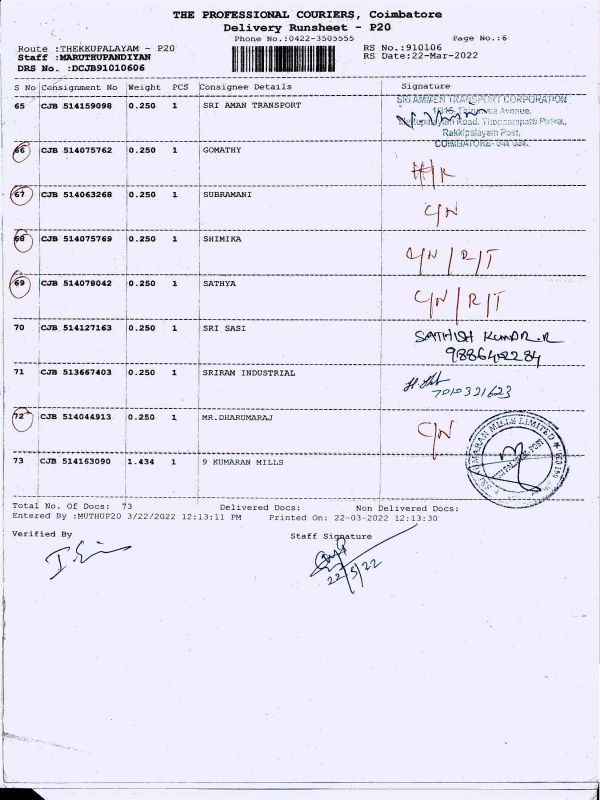 THE PROFESSIONAL COURIERS, Coimbatore
Delivery Runsheet - P20
Phone No.:0422-3505555 Page No.:6
Route :THEKKUPALAYAM - P20 RS No.:910106
Staff :MARUTHUPANDIYAN RS Date:22-Mar-2022
DRS No. :DCJB91010606
S No Consignment No Weight PCS Consignee Details Signature
65 CJB 514159098 0.250 1 SRI AMAN TRANSPORT
SRI AMMEN TRANSPORT CORPORATION
Avenue,
Road, Thoppampatti Pirivu,
Rakkipalayam Post,
COIMBATORE-
66 CJB 514075762 0.250 1 GOMATHY
67 CJB 514063268 0.250 1 SUBRAMANI C/N
68 CJB 514075769 0.250 1 SHIMIKA C/N / R/T
69 CJB 514078042 0.250 1 SATHYA C/N / R/T
70 CJB 514127163 0.250 1 SRI SASI SATHISH KUMAR.R
9886402284
71 CJB 513667403 0.250 1 SRIRAM INDUSTRIAL
7010321623
72 CJB 514044913 0.250 1 MR.DHARUMARAJ C/N
KUMARAN MILLS LIMITED
73 CJB 514163090 1.434 1 9 KUMARAN MILLS
Total No. Of Docs: 73 Delivered Docs: Non Delivered Docs:
Entered By :MUTHUP20 3/22/2022 12:13:11 PM Printed On: 22-03-2022 12:13:30
Verified By Staff Signature
22/3/22